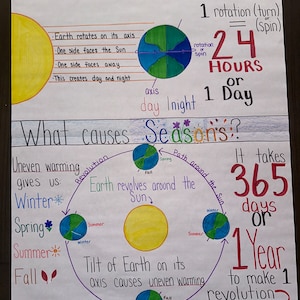 1 rotation (turn)
(Spin)
Earth rotates on its axis
One side faces the Sun
One side faces away
This creates day and night
rotation
Spin
24
HOURS
or
1 Day
axis
day | night
What causes Seasons?
Uneven warming
gives us
Winter
Spring
Summer
Fall
Revolution
Path around the sun
Fall
Earth revolves around the
Sun
Summer
Winter
Tilt of Earth on its
axis causes uneven warming
It takes
365
days
or
1 Year
to make 1
revolution